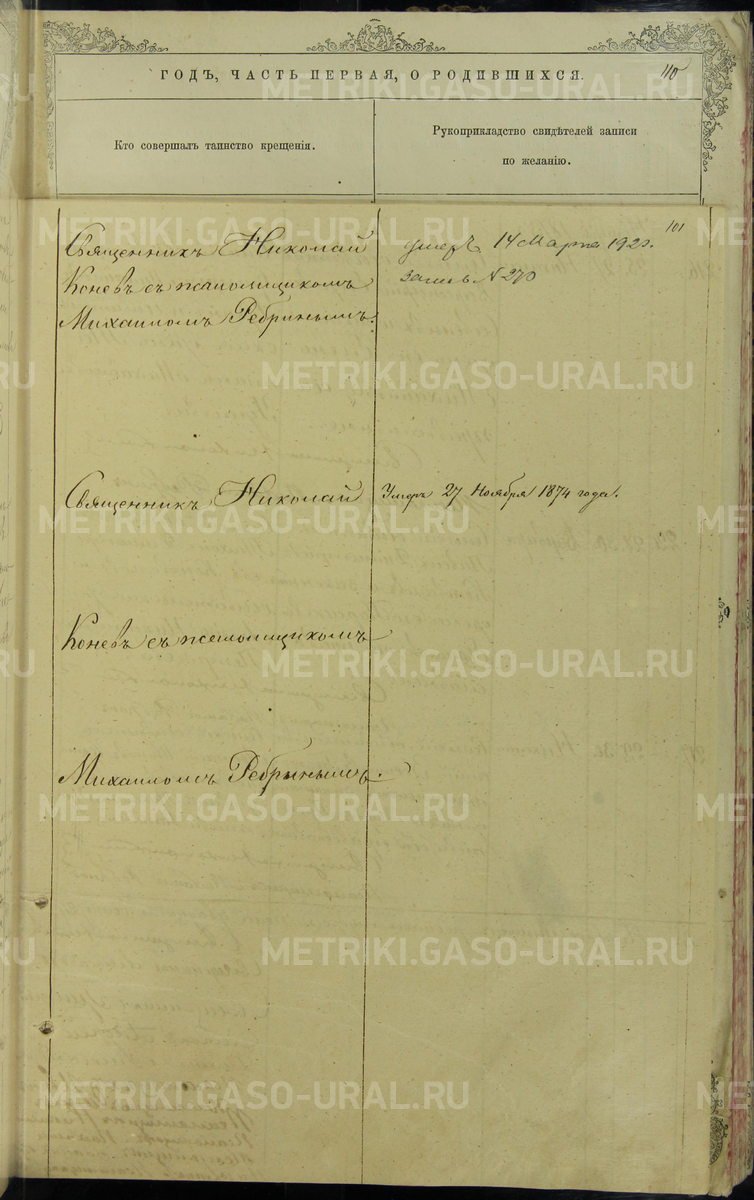 ГОДЪ, ЧАСТЬ ПЕРВАЯ, О РОДИВШИХСЯ.
110
Кто совершалъ таинство крещенія.
Рукоприкладство свидѣтелей записи
по желанію.
101
Священникъ Николай
Коневъ съ псаломщикомъ
Михаиломъ Ребринымъ.
умеръ 14 Марта 192
запись №270
Священникъ Николай
Умеръ 27 Ноября 1874 года.
Коневъ съ псаломщикомъ
Михаиломъ Ребринымъ.
METRIKI.GASO-URAL.RU